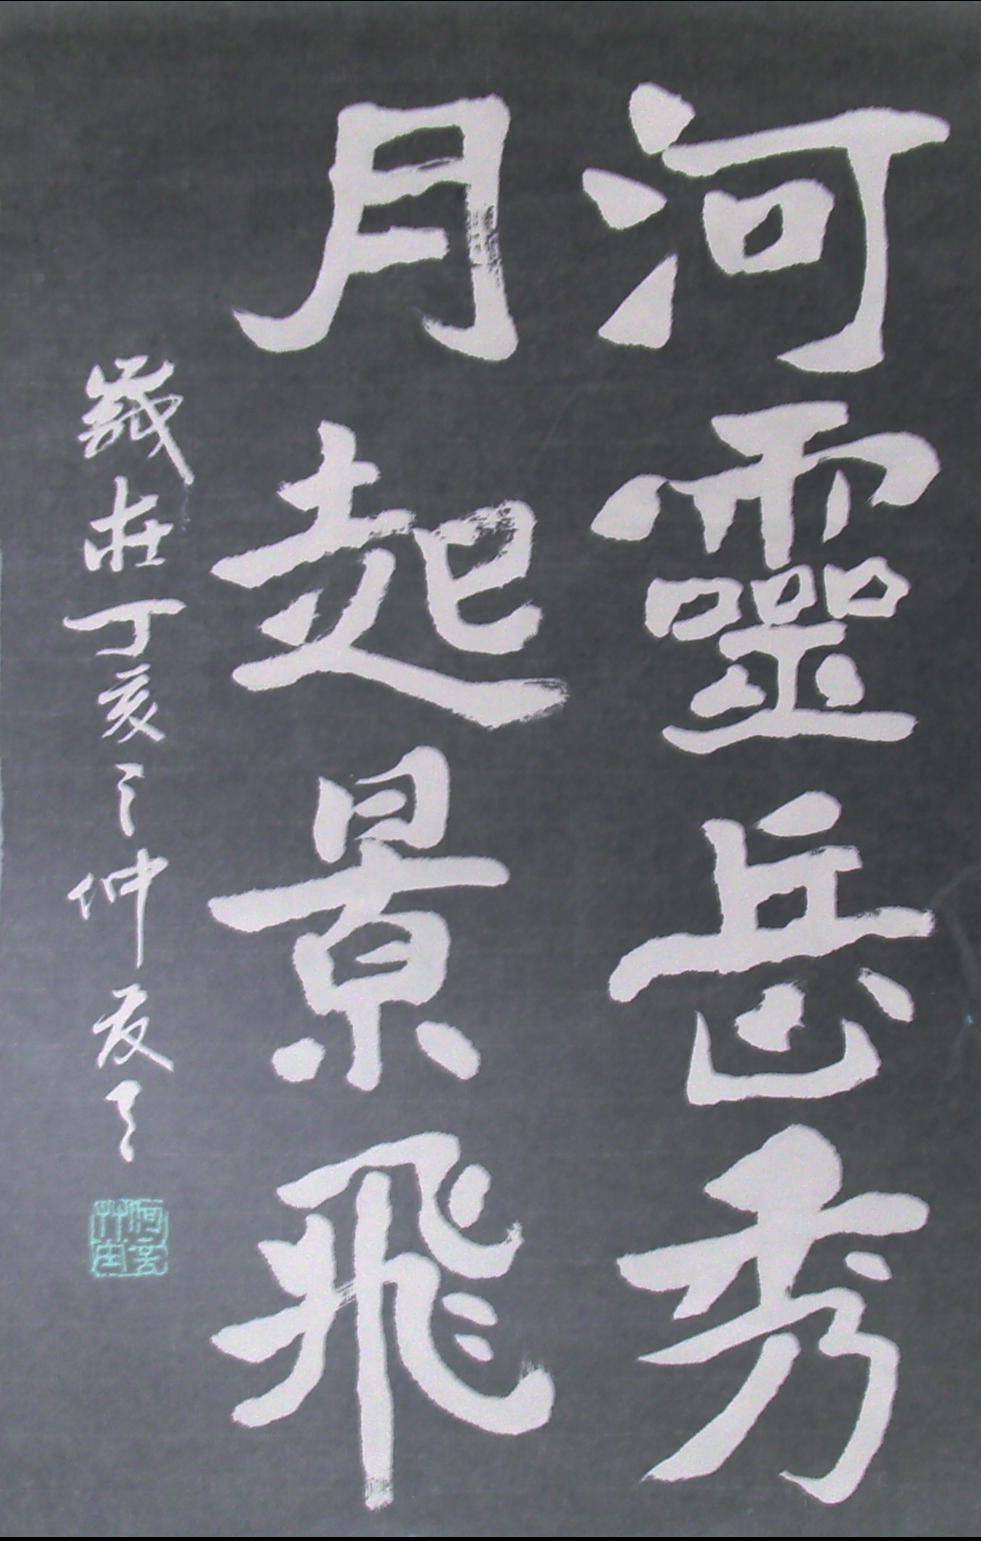 河靈岳秀
月起景飛
歲在丁亥之仲夏之